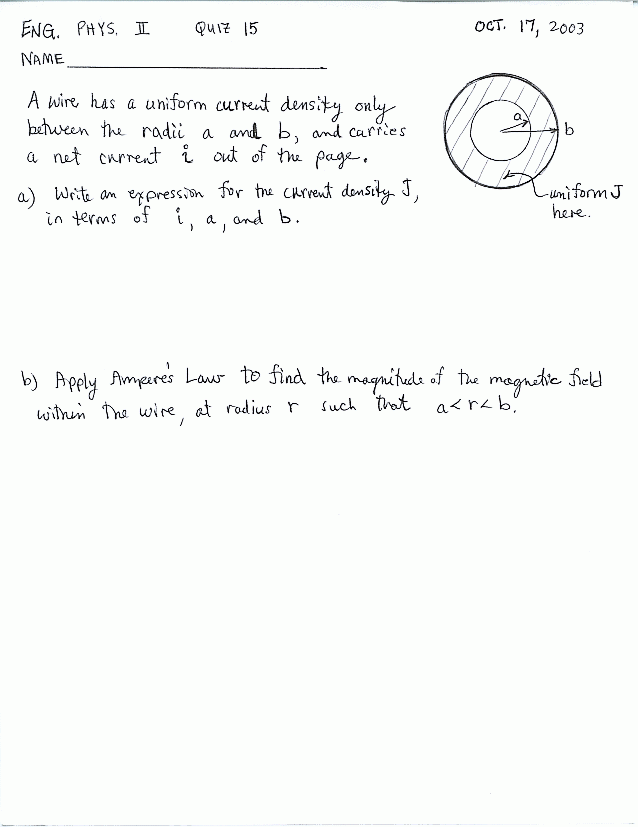 ENG. PHYS. II QUIZ 15 OCT. 17, 2003
NAME
A wire has a uniform current density only
between the radii a and b, and carries
a net current i out of the page.
a) Write an expression for the current density J,
in terms of i, a, and b.
a
b
uniform J
here.
b) Apply Ampere's Law to find the magnitude of the magnetic field
within the wire, at radius r such that a<r<b.